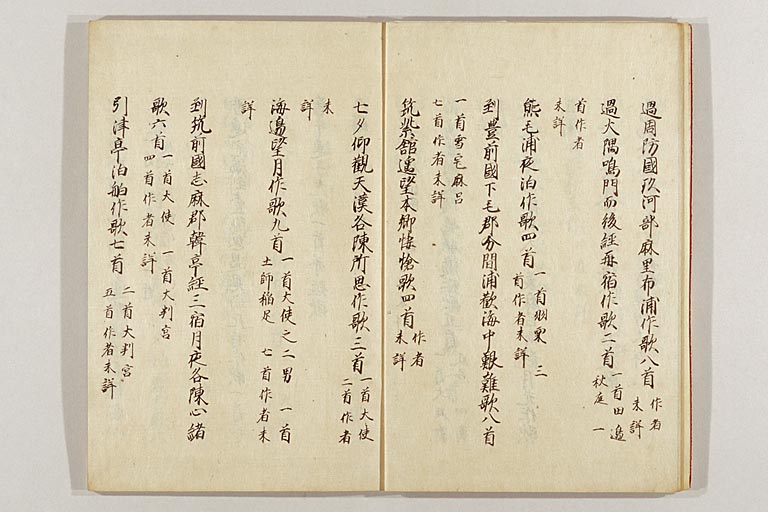 過周防國玖河郡麻里布浦作歌八首 作者未詳
過大隅鳴門而後經再宿作歌二首 一首田邊秋庭 一
首作者
未詳
熊毛浦夜泊作歌四首 一首羽栗 三首作者未詳
到豊前國下毛郡分間浦歎海中艱難歌八首
一首雪宅麻呂
七首作者未詳
筑紫舘遥望本郷悽愴歌四首 作者未詳
七夕仰觀天漢各陳所思作歌三首 一首大使 二首作者
未
詳
海邊望月作歌九首 一首大使之二男 一首土師稲足 七首作者未
詳
到筑前國志麻郡韓亭経三宿月夜各陳心緒
歌六首 一首大使 一首大判官 四首作者未詳
引津亭泊舶作歌七首 二首大判官 五首作者未詳